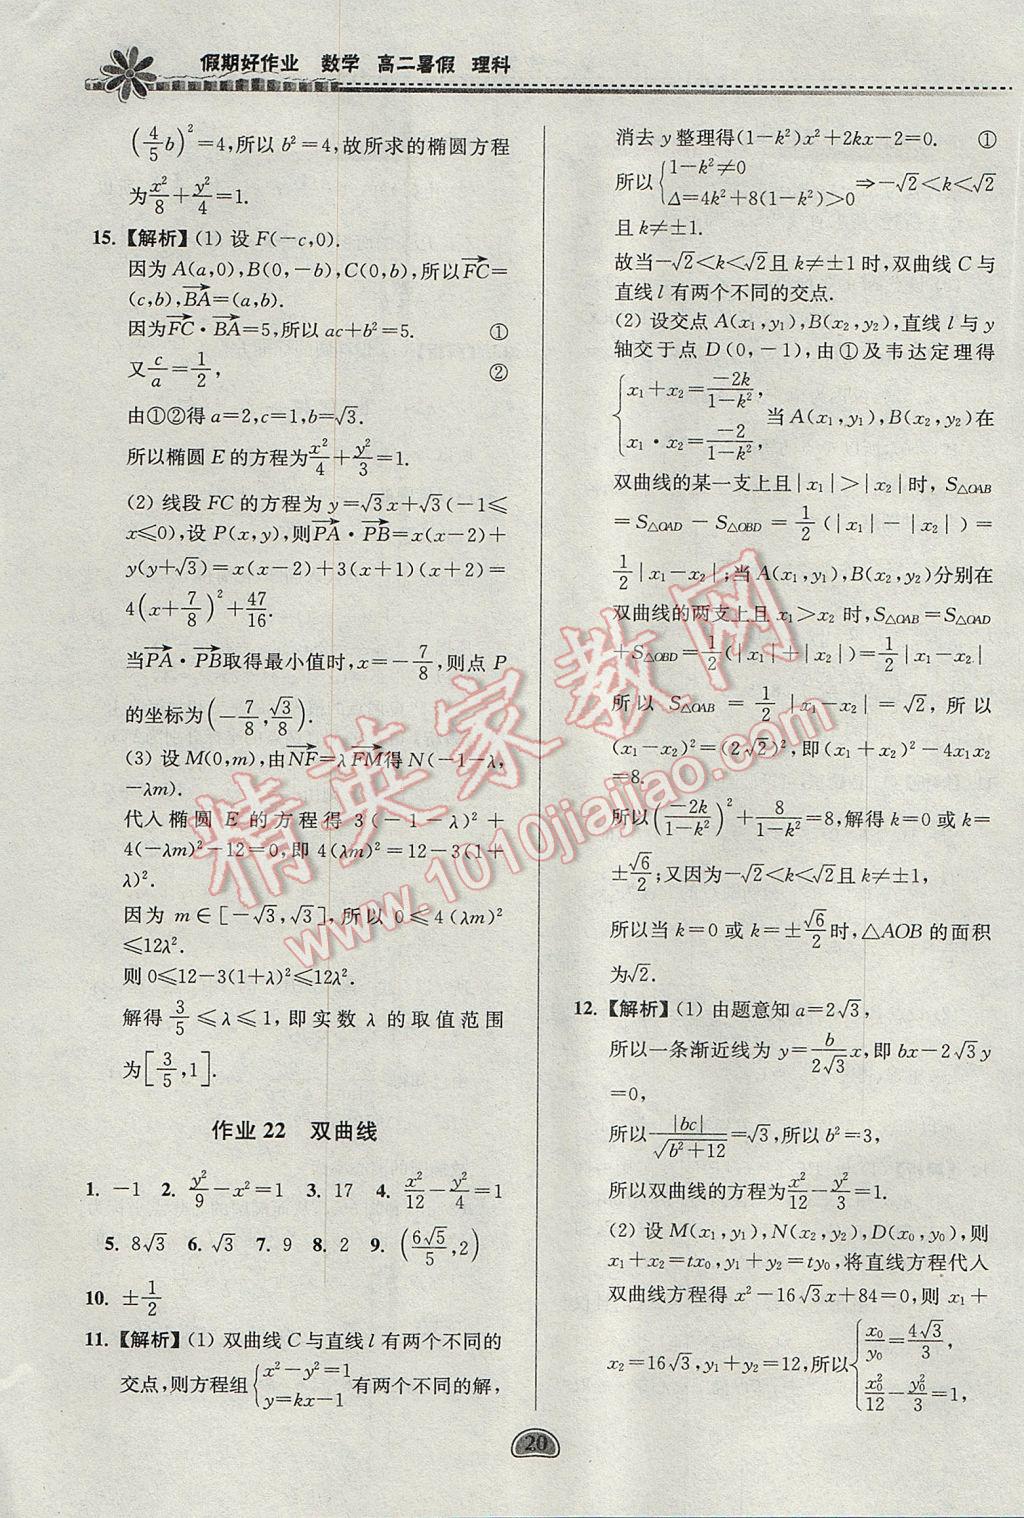 假期好作业 数学 高二暑假 理科
(4/5 b)²=4,所以 b²=4,故所求的椭圆方程
为 x²/8+y²/4=1.
15.【解析】(1) 设 F(-c,0).
因为 A(a,0),B(0,-b),C(0,b),所以 $\overrightarrow{FC}$=
(c,b),$\overrightarrow{BA}$=(a,b).
因为 $\overrightarrow{FC}$·$\overrightarrow{BA}$=5,所以 ac+b²=5. ①
又 c/a=1/2, ②
由①②得 a=2,c=1,b=√3.
所以椭圆 E 的方程为 x²/4+y²/3=1.
(2) 线段 FC 的方程为 y=√3x+√3(-1≤
x≤0),设 P(x,y),则 $\overrightarrow{PA}$·$\overrightarrow{PB}$=x(x-2)+
y(y+√3)=x(x-2)+3(x+1)(x+2)=
4(x+7/8)²+47/16.
当 $\overrightarrow{PA}$·$\overrightarrow{PB}$ 取得最小值时,x=-7/8,则点 P
的坐标为(-7/8,√3/8).
(3) 设 M(0,m),由 $\overrightarrow{NF}$=λ$\overrightarrow{FM}$ 得 N(-1-λ,
-λm).
代入椭圆 E 的方程得 3(-1-λ)²+
4(-λm)²-12=0,即 4(λm)²=12-3(1+
λ)².
因为 m∈[-√3,√3],所以 0≤4(λm)²
≤12λ².
则 0≤12-3(1+λ)²≤12λ².
解得 3/5≤λ≤1,即实数 λ 的取值范围
为[3/5,1].
作业 22 双曲线
1. -1 2. y²/9-x²=1 3. 17 4. x²/12-y²/4=1
5. 8√3 6. √3 7. 9 8. 2 9. (6√5/5,2)
10. ±1/2
11.【解析】(1) 双曲线 C 与直线 l 有两个不同的
交点,则方程组{x²-y²=1, y=kx-1 有两个不同的解,
消去 y 整理得(1-k²)x²+2kx-2=0. ①
所以{1-k²≠0, Δ=4k²+8(1-k²)>0 ⇒-√2<k<√2
且 k≠±1.
故当-√2<k<√2且 k≠±1 时,双曲线 C 与
直线 l 有两个不同的交点.
(2) 设交点 A(x₁,y₁),B(x₂,y₂),直线 l 与 y
轴交于点 D(0,-1),由①及韦达定理得
{x₁+x₂=-2k/(1-k²), x₁·x₂=-2/(1-k²), 当 A(x₁,y₁),B(x₂,y₂)在
双曲线的某一支上且|x₁|>|x₂|时,S△OAB
=S△OAD-S△OBD=1/2(|x₁|-|x₂|)=
1/2|x₁-x₂|;当 A(x₁,y₁),B(x₂,y₂)分别在
双曲线的两支上且 x₁>x₂ 时,S△OAB=S△OAD
+S△OBD=1/2(|x₁|+|x₂|)=1/2|x₁-x₂|
所以 S△OAB=1/2|x₁-x₂|=√2,所以
(x₁-x₂)²=(2√2)²,即(x₁+x₂)²-4x₁x₂
=8.
所以(-2k/(1-k²))²+8/(1-k²)=8,解得 k=0 或 k=
±√6/2;又因为-√2<k<√2且 k≠±1,
所以当 k=0 或 k=±√6/2时,△AOB 的面积
为√2.
12.【解析】(1) 由题意知 a=2√3,
所以一条渐近线为 y=b/(2√3) x,即 bx-2√3y
=0,
所以|bc|/√(b²+12)=√3,所以 b²=3,
所以双曲线的方程为 x²/12-y²/3=1.
(2) 设 M(x₁,y₁),N(x₂,y₂),D(x₀,y₀),则
x₁+x₂=tx₀,y₁+y₂=ty₀,将直线方程代入
双曲线方程得 x²-16√3x+84=0,则 x₁+
x₂=16√3,y₁+y₂=12,所以{x₀/y₀=4√3/3, x₀²/12-y₀²/3=1,
20
精英家教网
www.1010jiajiao.com